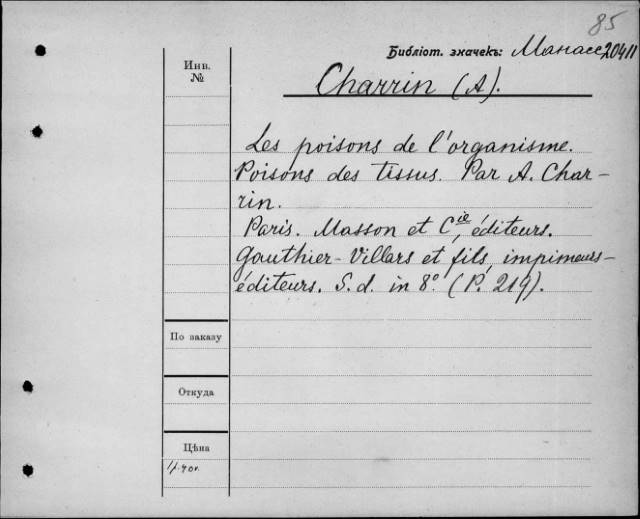 85
Библіот. значекъ: Манасс 20411
Инв.
№
Charrin (A).
Les poisons de l'organisme.
Poisons des tissus. Par A. Char-
rin.
Paris. Masson et Cie, éditeurs.
Gauthier-Villars et fils, imprimeurs-
éditeurs. S. d. in 8°. (P. 219).
По заказу
Откуда
Цѣна